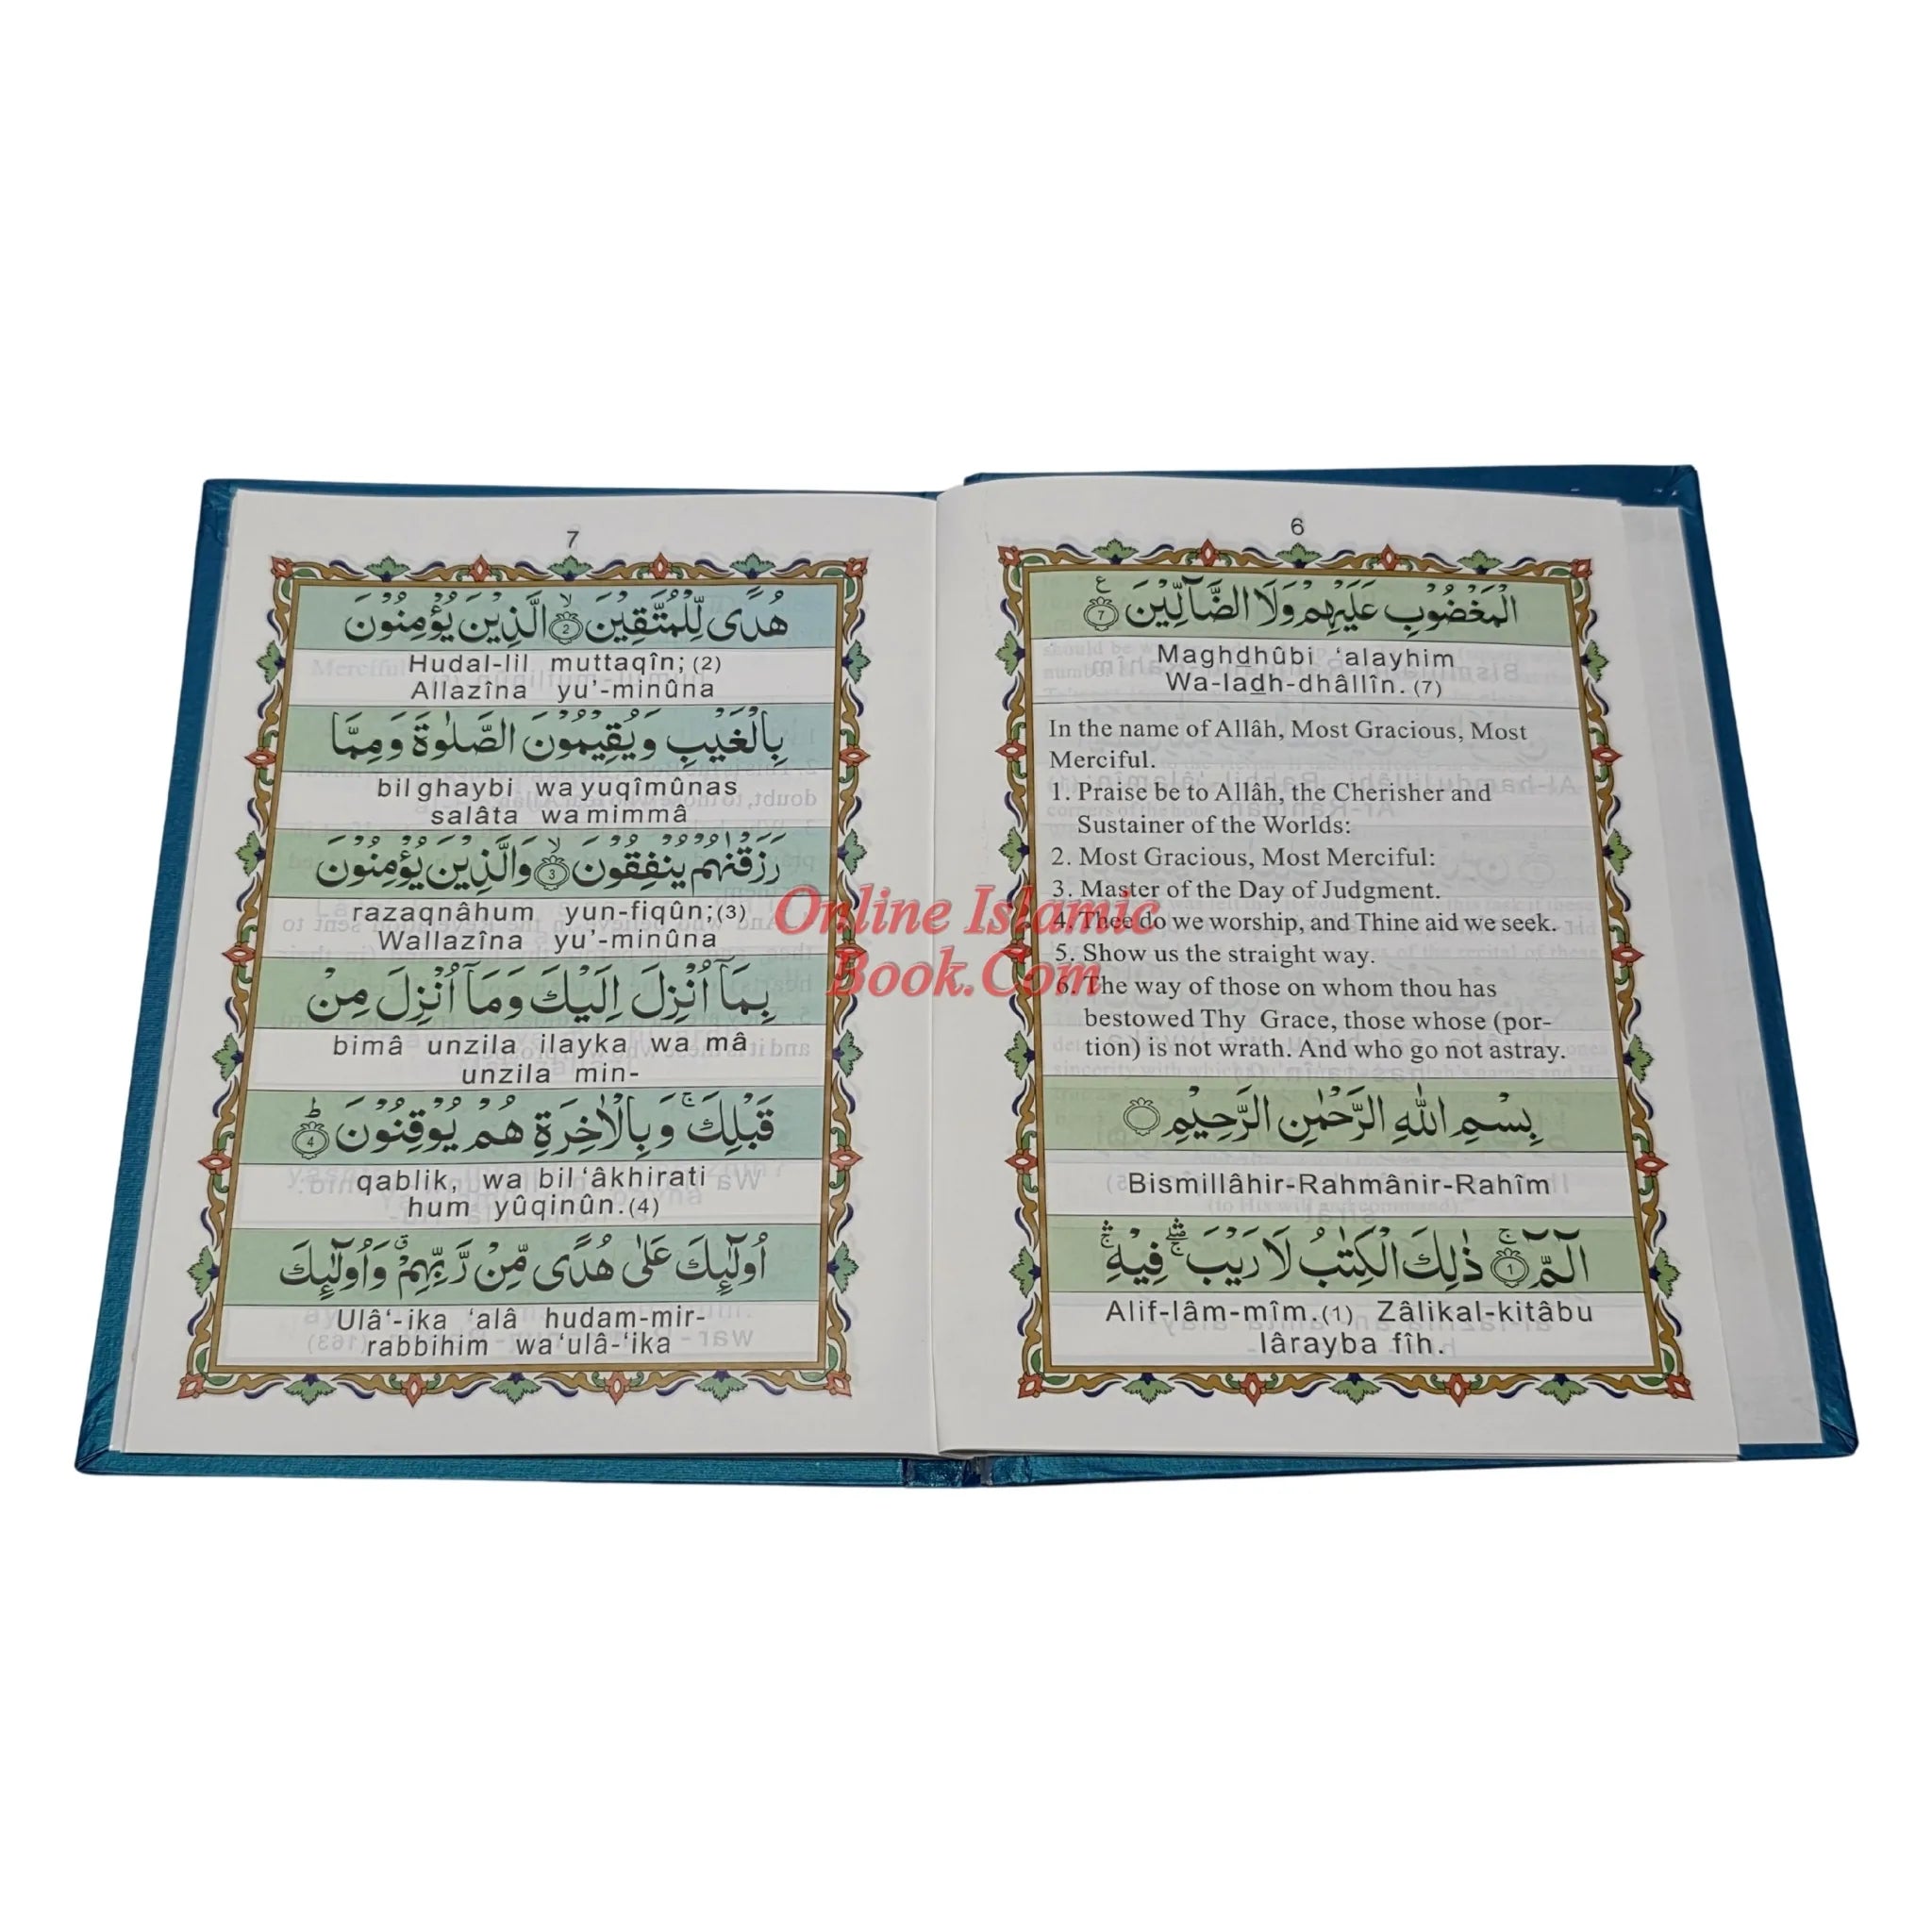 6
الْمَغْضُوْبِ عَلَيْهِمْ وَلَا الضَّآلِّيْنَ ۷ ع
Maghdhûbi ‘alayhim
Wa-ladh-dhâllîn. (7)
In the name of Allâh, Most Gracious, Most
Merciful.
1. Praise be to Allâh, the Cherisher and
Sustainer of the Worlds:
2. Most Gracious, Most Merciful:
3. Master of the Day of Judgment.
4. Thee do we worship, and Thine aid we seek.
5. Show us the straight way.
6. The way of those on whom thou has
bestowed Thy Grace, those whose (por-
tion) is not wrath. And who go not astray.
بِسْمِ اللهِ الرَّحْمٰنِ الرَّحِيْمِ
Bismillâhir-Rahmânir-Rahîm
الٓمّٓ ۚ 1 ذٰلِكَ الْكِتٰبُ لَا رَيْبَ ۛ فِيْهِ ۛ
Alif-lâm-mîm.(1) Zâlikal-kitâbu
lârayba fîh.
7
هُدًى لِّلْمُتَّقِيْنَ ۙ 2 الَّذِيْنَ يُؤْمِنُوْنَ
Hudal-lil muttaqîn; (2)
Allazîna yu’-minûna
بِالْغَيْبِ وَيُقِيْمُوْنَ الصَّلٰوةَ وَمِمَّا
bil ghaybi wa yuqîmûnas
salâta wa mimmâ
رَزَقْنٰهُمْ يُنْفِقُوْنَ ۙ 3 وَالَّذِيْنَ يُؤْمِنُوْنَ
razaqnâhum yun-fiqûn;(3)
Wallazîna yu’-minûna
بِمَآ اُنْزِلَ اِلَيْكَ وَمَآ اُنْزِلَ مِنْ
bimâ unzila ilayka wa mâ
unzila min-
قَبْلِكَ ۚ وَبِالْاٰخِرَةِ هُمْ يُوْقِنُوْنَ ؕ 4
qablik, wa bil‘âkhirati
hum yûqinûn.(4)
اُولٰٓئِكَ عَلٰى هُدًى مِّنْ رَّبِّهِمْ ۗ وَاُولٰٓئِكَ
Ulâ‘-ika ‘alâ hudam-mir-
rabbihim wa‘ulâ-‘ika
Online Islamic
Book.Com